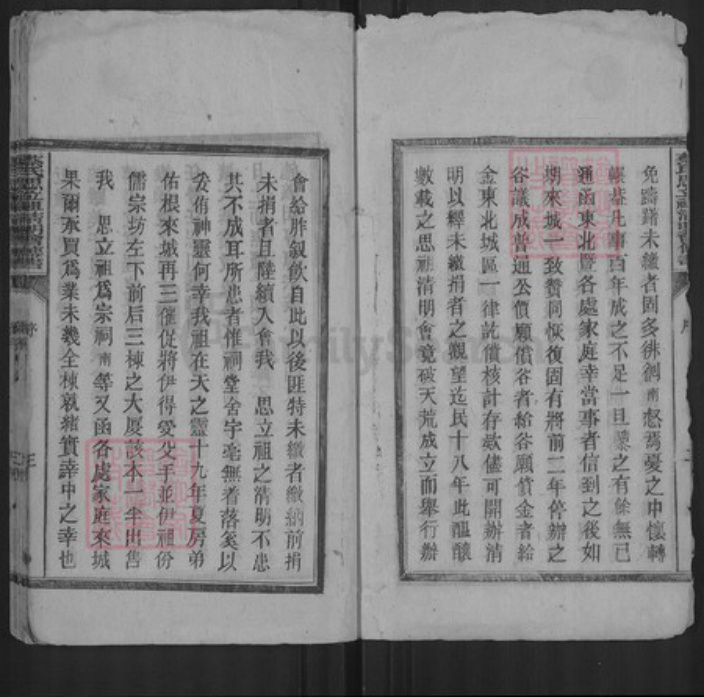 免躊躇未繳者固多徘徊南惄焉憂之中懷轉
輾甚凡事百年成之不足一旦隳之有餘無已
通函東北暨各處家庭幸當事者信到之後如
期來城一致贊同恢復固有將前二年停辦之
谷議成普通公價願償谷者給谷願償金者給
金東北城區一律訖償核計存欵儘可開辦清
明以釋未繳捐者之觀望迄民十八年此醞釀
數載之思祖清明會竟破天荒成立而舉行辦
會給胙叙飲自此以後匪特未繳者繳納前捐
未捐者且陸續入會我 思立祖之清明不患
其不成耳所患者惟祠堂舍宇毫無着落奚以
妥侑神靈何幸我祖在天之靈十九年夏房弟
佑根來城再三催促將伊得愛父手並伊祖份
儒宗坊左下前后三棟之大厦該本一半出售
我 思立祖爲宗祠南等又函各處家庭來城
果爾承買爲業未幾全棟就緒實幸中之幸也
序
FamilySearch